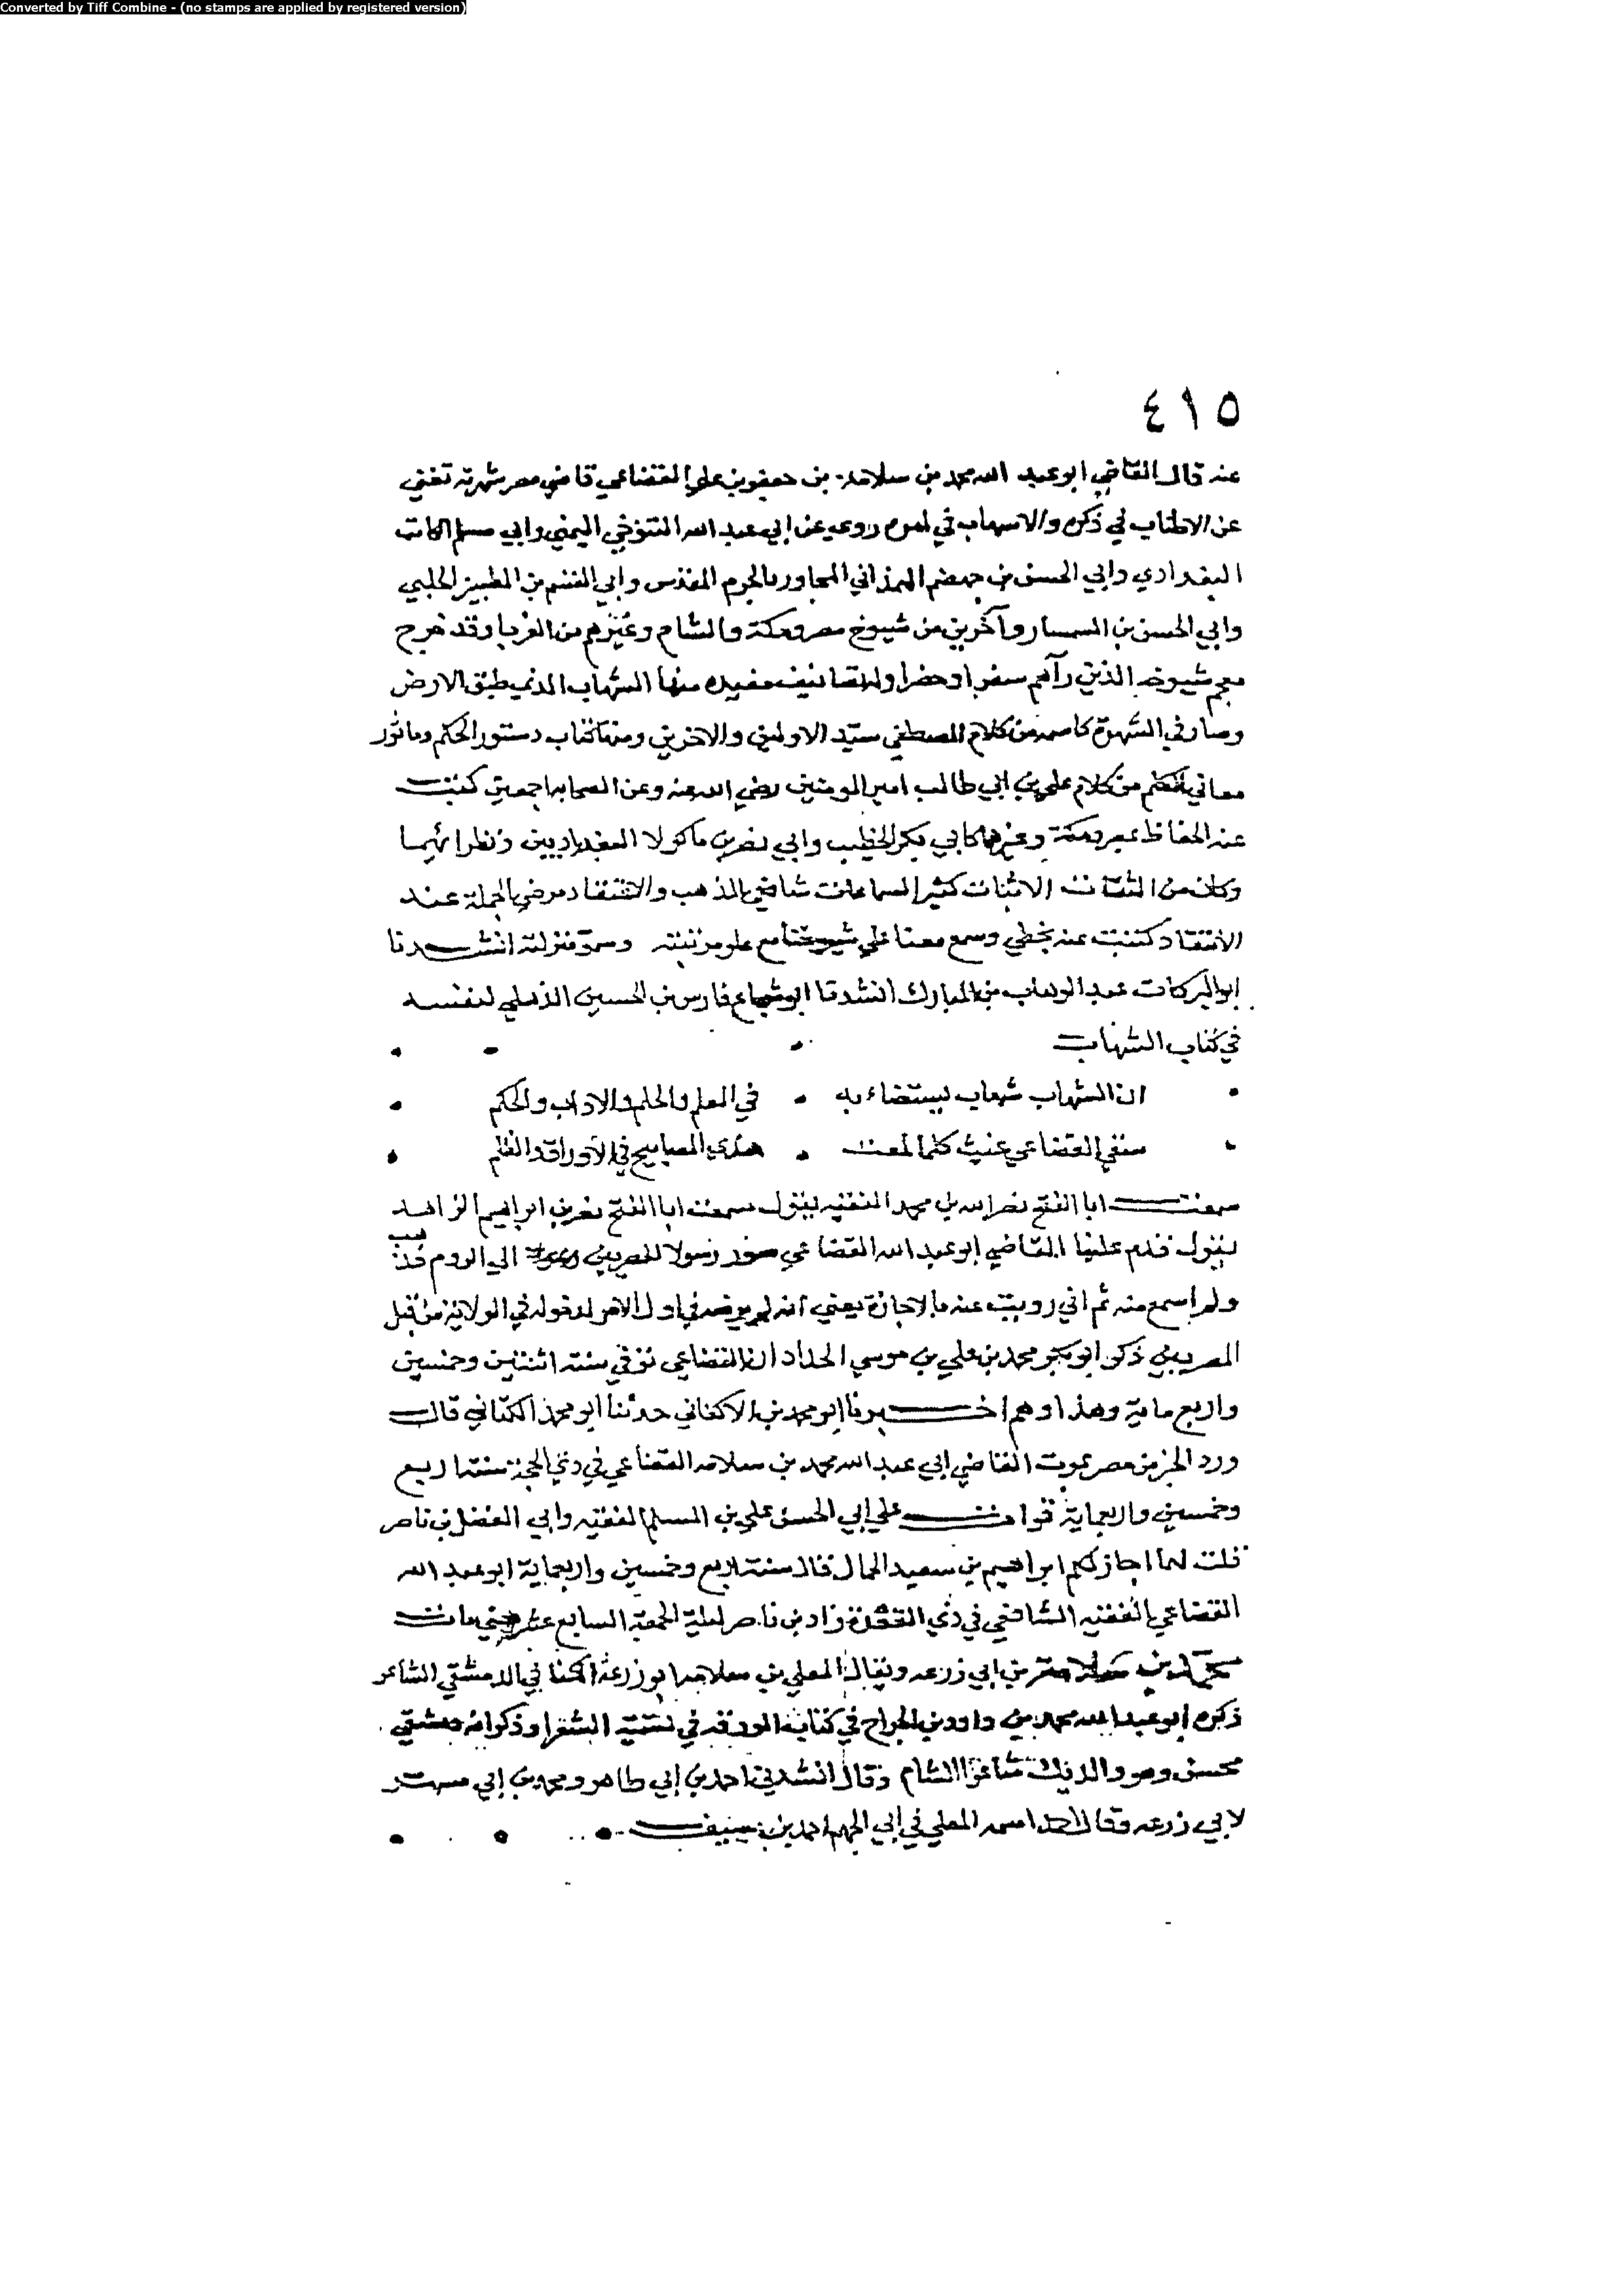 Converted by Tiff Combine - (no stamps are applied by registered version)
٤١٥
عنه قال القاضي ابو عبد الله محمد بن سلامة بن جعفر بن علي القضاعي قاضي مصر شهرته تغني
عن الاطناب في ذكره والاسهاب في امره روى عن ابي عبد الله التنوخي اليمني وابي مسلم الكاتب
البغدادي وابي الحسن بن جهضم الهمذاني المجاور بالحرم المقدس وابي القسم بن الطبيز الحلبي
وابي الحسن بن السمسار وآخرين من شيوخ مصر ومكة والشام وغيرهم من الغربا وقد خرج
معجم شيوخه الذين رآهم سفرا وحضرا وله تصانيف مفيده منها الشهاب الذي طبق الارض
وصار في الشهرة كاسمه من كلام المصطفى سيد الاولين والاخرين ومنها كتاب دستور الحكم وماثور
معاني الكلم من كلام علي بن ابي طالب امير المومنين رضي الله عنه وعن الصحابه اجمعين كتبت
عنه الحفاظ بمصر ومكة وغيرهما كابي بكر الخطيب وابي نصر بن ماكولا البغداديين ونظرائهما
وكان من الثقات الاثبات كثير السماعات شافعي المذهب والاعتقاد مرضي الجملة عند
الانتقاد كتبت عنه بخطي وسمع معنا على شيوخنا مع علو مرتبته وسمو منزلته انشدنا
ابو البركات عبد الوهاب بن المبارك انشدنا ابو شجاع فارس بن الحسين الذهلي لنفسه
في كتاب الشهاب
ان الشهاب شهاب يستضاء به في العلم والحلم والاداب والحكم
سقى القضاعي غيث كلما لمعت هذي المصابيح في الاوراق والظلم
سمعت ابا الفتح نصر الله بن محمد الفقيه يقول سمعت ابا الفتح نصر بن ابراهيم الزاهد
يقول قدم علينا القاضي ابو عبد الله القضاعي صور رسولا للمصريين الى الروم فذهب
ولم اسمع منه ثم اني رويت عنه بالاجازة يعني انه لم يرضه في اول الامر لدخوله في الولاية من قبل
المصريين ذكر ابو بكر محمد بن علي بن موسى الحداد ان القضاعي توفي سنة اثنتين وخمسين
واربع ماية وهذا وهم اخبرنا ابو محمد بن الاكفاني حدثنا ابو محمد الكتاني قال
ورد الخبر من مصر بموت القاضي ابي عبد الله محمد بن سلامه القضاعي في ذي الحجة سنة اربع
وخمسين واربعماية قرات على ابي الحسن علي بن المسلم الفقيه وابي الفضل بن ناصر
قلت لهما اجاز لكم ابراهيم بن سعيد الحبال قال سنة اربع وخمسين واربعماية ابو عبد الله
القضاعي الفقيه الشافعي في ذي القعدة زاد بن ناصر ليلة الجمعة السابع عشر يعني مات
محمد بن سلامة بن ابي زرعه ويقال المعلى بن سلامه ابو زرعة الكناني الدمشقي الشاعر
ذكره ابو عبد الله محمد بن داود بن الجراح في كتاب الورقة في تسمية الشعرا وذكر انه دمشقي
محسن وهو والديك شاعرا الشام وقال انشدني احمد بن ابي طاهر ومحمد بن ابي مسهر
لابي زرعه وقال احمد اسمه المعلى في ابي الجهم احمد بن سيف